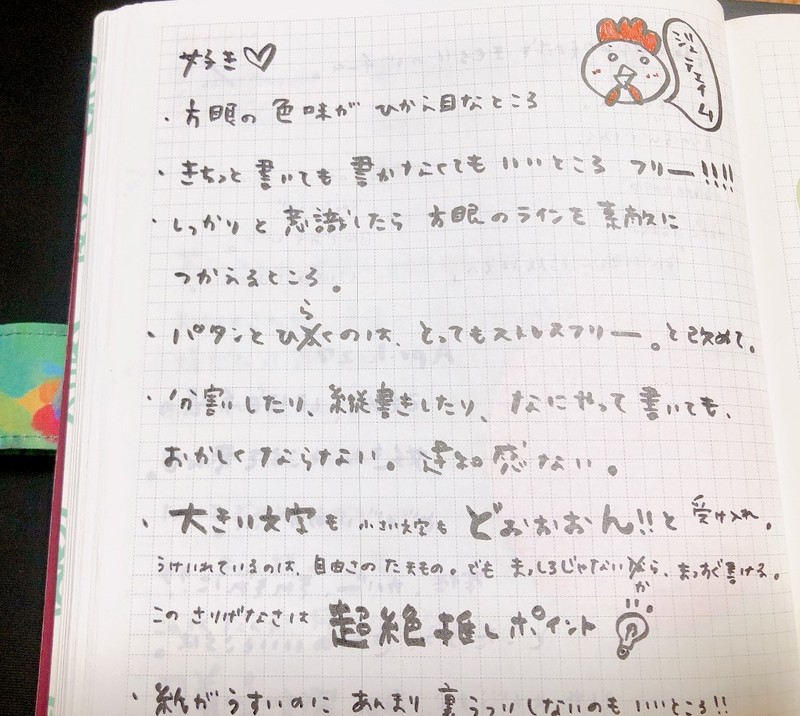 好き♡
ジュテェイム
・方眼の色味がひかえ目なところ
・きちっと書いても書かなくてもいいところ フリー!!!!
・しっかりと意識したら方眼のラインを素敵に
つかえるところ。
・パタンとひらくのは、とってもストレスフリー。と改めて。
・分割したり、縦書きしたり、なにやって書いても、
おかしくならない。違和感ない。
・大きい文字も小さい文字もどぉぉぉおん!!と受け入れ。
うけいれているのは、自由さのたまもの。でもまっしろじゃないから、まっすぐ書ける。
このさりげなさは超絶推しポイント
・紙がうすいのにあんまり裏うつりしないのもいいところ!!